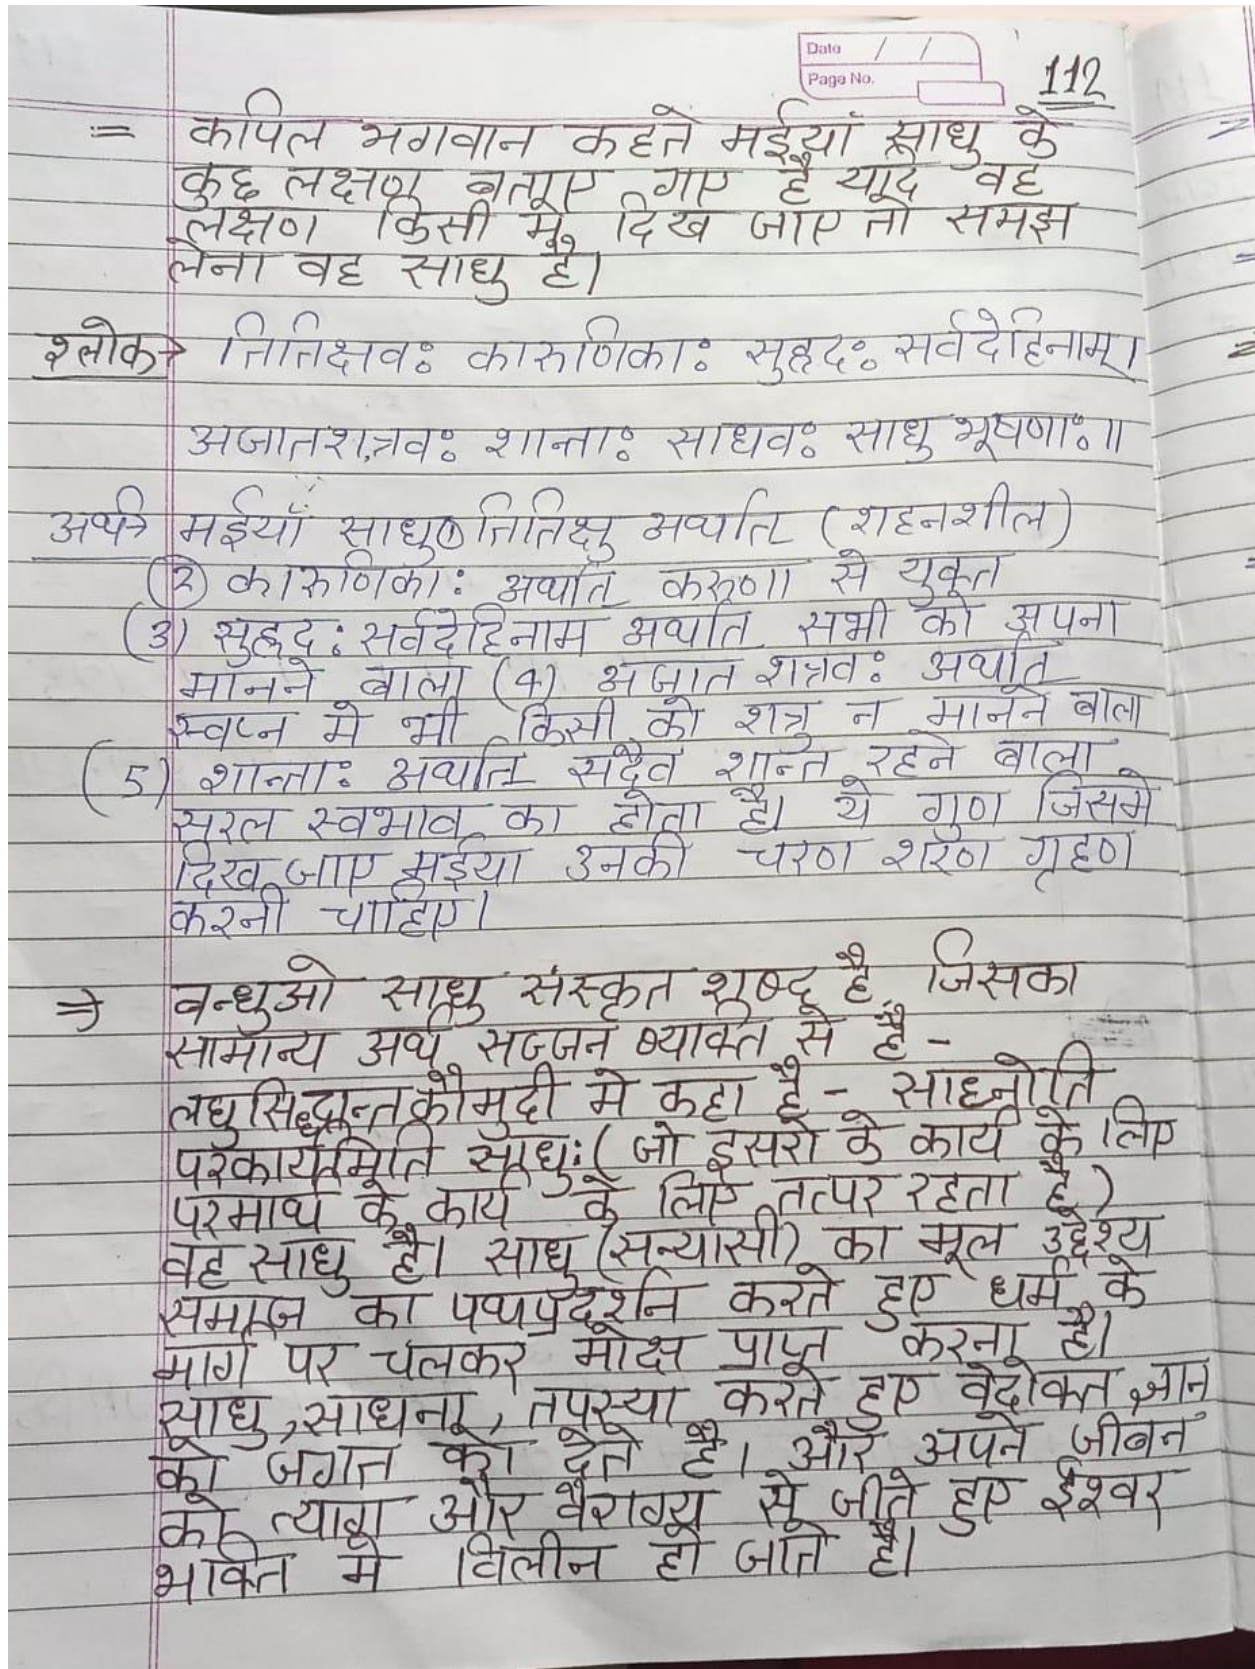 Date / /
Page No.
112
= कपिल भगवान कहते मईयां साधु के
कुछ लक्षण बताए गए है यदि वह
लक्षण किसी में दिख जाए तो समझ
लेना वह साधु है।
श्लोक→ तितिक्षवः कारुणिकाः सुहृदः सर्वदेहिनाम्।
अजातशत्रवः शान्ताः साधवः साधु भूषणाः॥
अर्थ→ मईयाँ साधु① तितिक्षु अर्थात (शहनशील)
(२) कारुणिकाः अर्थात करूणा से युक्त
(3) सुहृदः सर्वदेहिनाम अर्थात सभी को अपना
मानने बाला (४) अजात शत्रवः अर्थात
स्वप्न मे भी किसी को शत्रु न मानने बाला
(5) शान्ताः अर्थात सदैव शान्त रहने बाला
सरल स्वभाव का होता है। ये गुण जिसमे
दिख जाए मईया उनकी चरण शरण ग्रहण
करनी चाहिए।
⇒ बन्धुओ साधु संस्कृत शब्द है, जिसका
सामान्य अर्थ सज्जन व्यक्ति से है -
लघुसिद्धान्तकौमुदी मे कहा है - साध्नोति
परकार्यमिति साधुः (जो दूसरो के कार्य के लिए
परमार्थ के कार्य के लिए तत्पर रहता है)
वह साधु है। साधु (सन्यासी) का मूल उद्देश्य
समाज का पथप्रदर्शन करते हुए धर्म के
मार्ग पर चलकर मोक्ष प्राप्त करना है।
साधु, साधना, तपस्या करते हुए वेदोक्त ज्ञान
को जगत को देते है। और अपने जीबन
को त्याग और वैराग्य से जीते हुए ईश्वर
भक्ति मे विलीन हो जाते है।